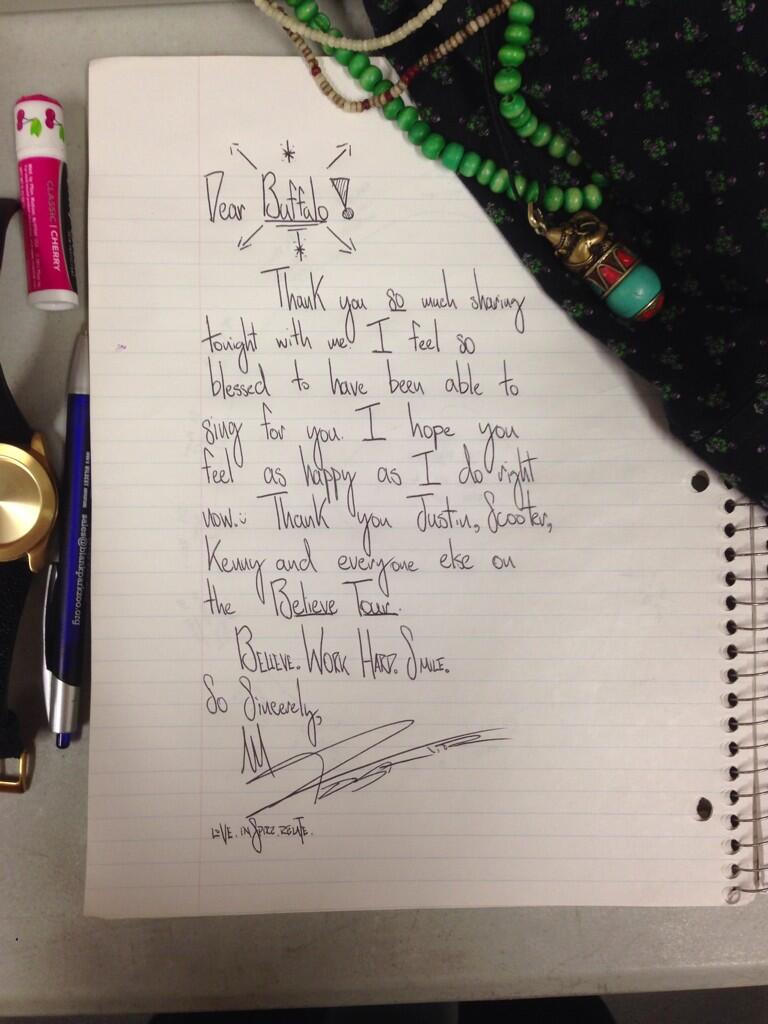 Dear Buffalo!
Thank you so much sharing
tonight with me! I feel so
blessed to have been able to
sing for you. I hope you
feel as happy as I do right
now.:) Thank you Justin, Scooter,
Kenny and everyone else on
the Believe Tour.
BELIEVE. WORK HARD. SMILE.
So Sincerely,
LOVE. INSPIRE. RELATE.
CLASSIC | CHERRY
sales@blankparkzoo.org